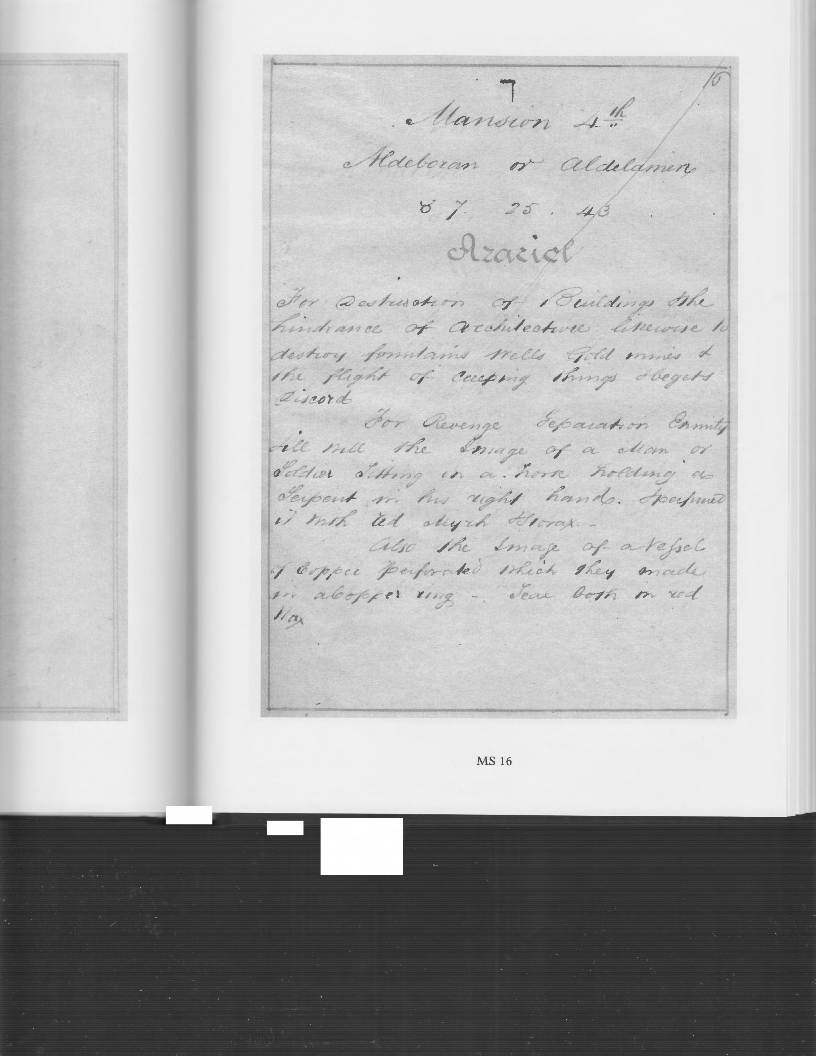 16
ד
Mansion 4th
Aldeboran or Aldelamen
♉ 7. 25. 43
Azariel
For Destruction of Buildings & the
hindrance of Architecture likewise to
destroy fountains Wells Gold mines &
the flight of creeping things & begets
Discord
For Revenge Separation Enmity
& ill will the Image of a Man or
Soldier Sitting on a horse holding a
Serpent in his right hand. & perfumed
it with red Myrh Storax -
Also the Image of a Vessel
of Copper Perforated which they made
in a Copper ring - Seal both in red
Wax
MS 16